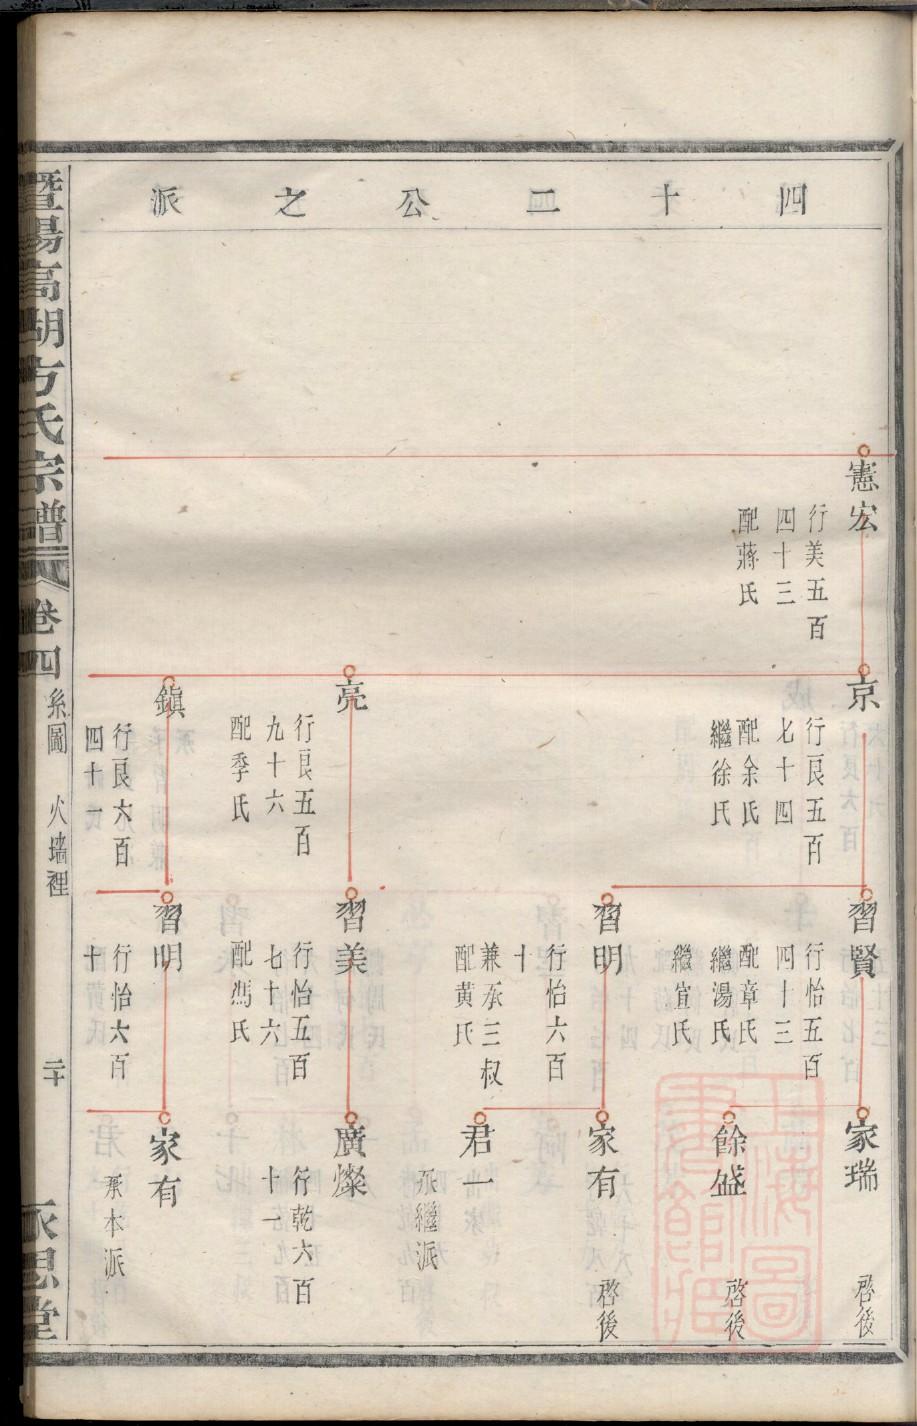 四十二公之派
憲宏
行美五百
四十三
配蔣氏
京
行良五百
七十四
配余氏
繼徐氏
亮
行良五百
九十六
配季氏
鎮
行良六百
四十一
習賢
行怡五百
四十三
配章氏
繼湯氏
繼宣氏
習明
行怡六百
十
兼承三叔
配黄氏
習美
行怡五百
七十六
配馮氏
習明
行怡六百
十
家瑞
啓後
餘盛
啓後
家有
啓後
君一
承繼派
廣燦
行乾六百
十一
家有
承本派
暨陽高湖方氏宗譜
卷四
系圖
火墙裡
二十
永思堂